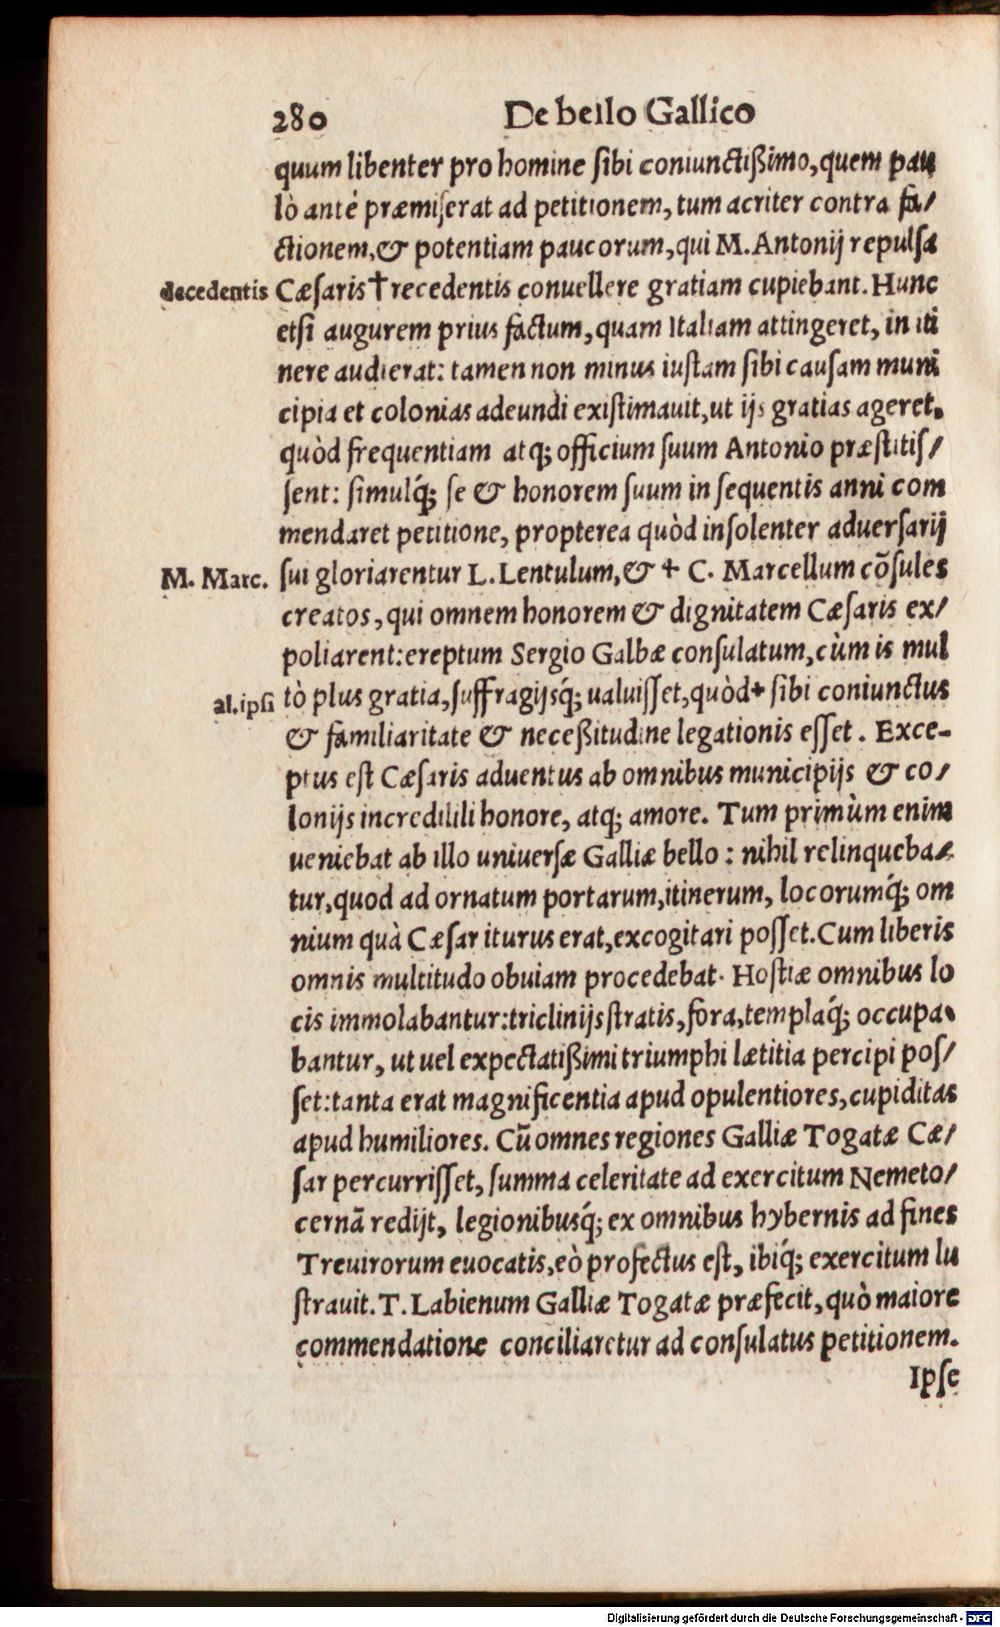 280 De bello Gallico
quum libenter pro homine ſibi coniunctißimo, quem pau
lò antè præmiſerat ad petitionem, tum acriter contra fa/
ctionem, & potentiam paucorum, qui M. Antonij repulſa
decedentis Cæſaris † recedentis conuellere gratiam cupiebant. Hunc
etſi augurem prius factum, quam Italiam attingeret, in iti
nere audierat: tamen non minus iuſtam ſibi cauſam muni
cipia et colonias adeundi exiſtimauit, ut ijs gratias ageret.
quòd frequentiam atq; officium ſuum Antonio præſtitiſ/
ſent: ſimulq́; ſe & honorem ſuum in ſequentis anni com
mendaret petitione, propterea quòd inſolenter aduerſarij
M. Marc. ſui gloriarentur L. Lentulum, & + C. Marcellum cõſules
creatos, qui omnem honorem & dignitatem Cæſaris ex/
poliarent: ereptum Sergio Galbæ conſulatum, cùm is mul
al. ipſi tò plus gratia, ſuffragijsq́; ualuiſſet, quòd + ſibi coniunctus
& familiaritate & neceßitudine legationis eſſet. Exce-
ptus eſt Cæſaris aduentus ab omnibus municipijs & co/
lonijs incredilili honore, atq; amore. Tum primùm enim
ueniebat ab illo uniuerſæ Galliæ bello: nihil relinqueba-
tur, quod ad ornatum portarum, itinerum, locorumq́; om
nium quà Cæſar iturus erat, excogitari poſſet. Cum liberis
omnis multitudo obuiam procedebat. Hoſtiæ omnibus lo
cis immolabantur: triclinijs ſtratis, fora, templaq́; occupa-
bantur, ut uel expectatißimi triumphi lætitia percipi poſ/
ſet: tanta erat magnificentia apud opulentiores, cupiditas
apud humiliores. Cũ omnes regiones Galliæ Togatæ Cæ/
ſar percurriſſet, ſumma celeritate ad exercitum Nemeto/
cernã redijt, legionibusq́; ex omnibus hybernis ad fines
Treuirorum euocatis, eò profectus eſt, ibiq́; exercitum lu
ſtrauit. T. Labienum Galliæ Togatæ præfecit, quò maiore
commendatione conciliaretur ad conſulatus petitionem.
Ipſe
Digitalisierung gefördert durch die Deutsche Forschungsgemeinschaft - DFG